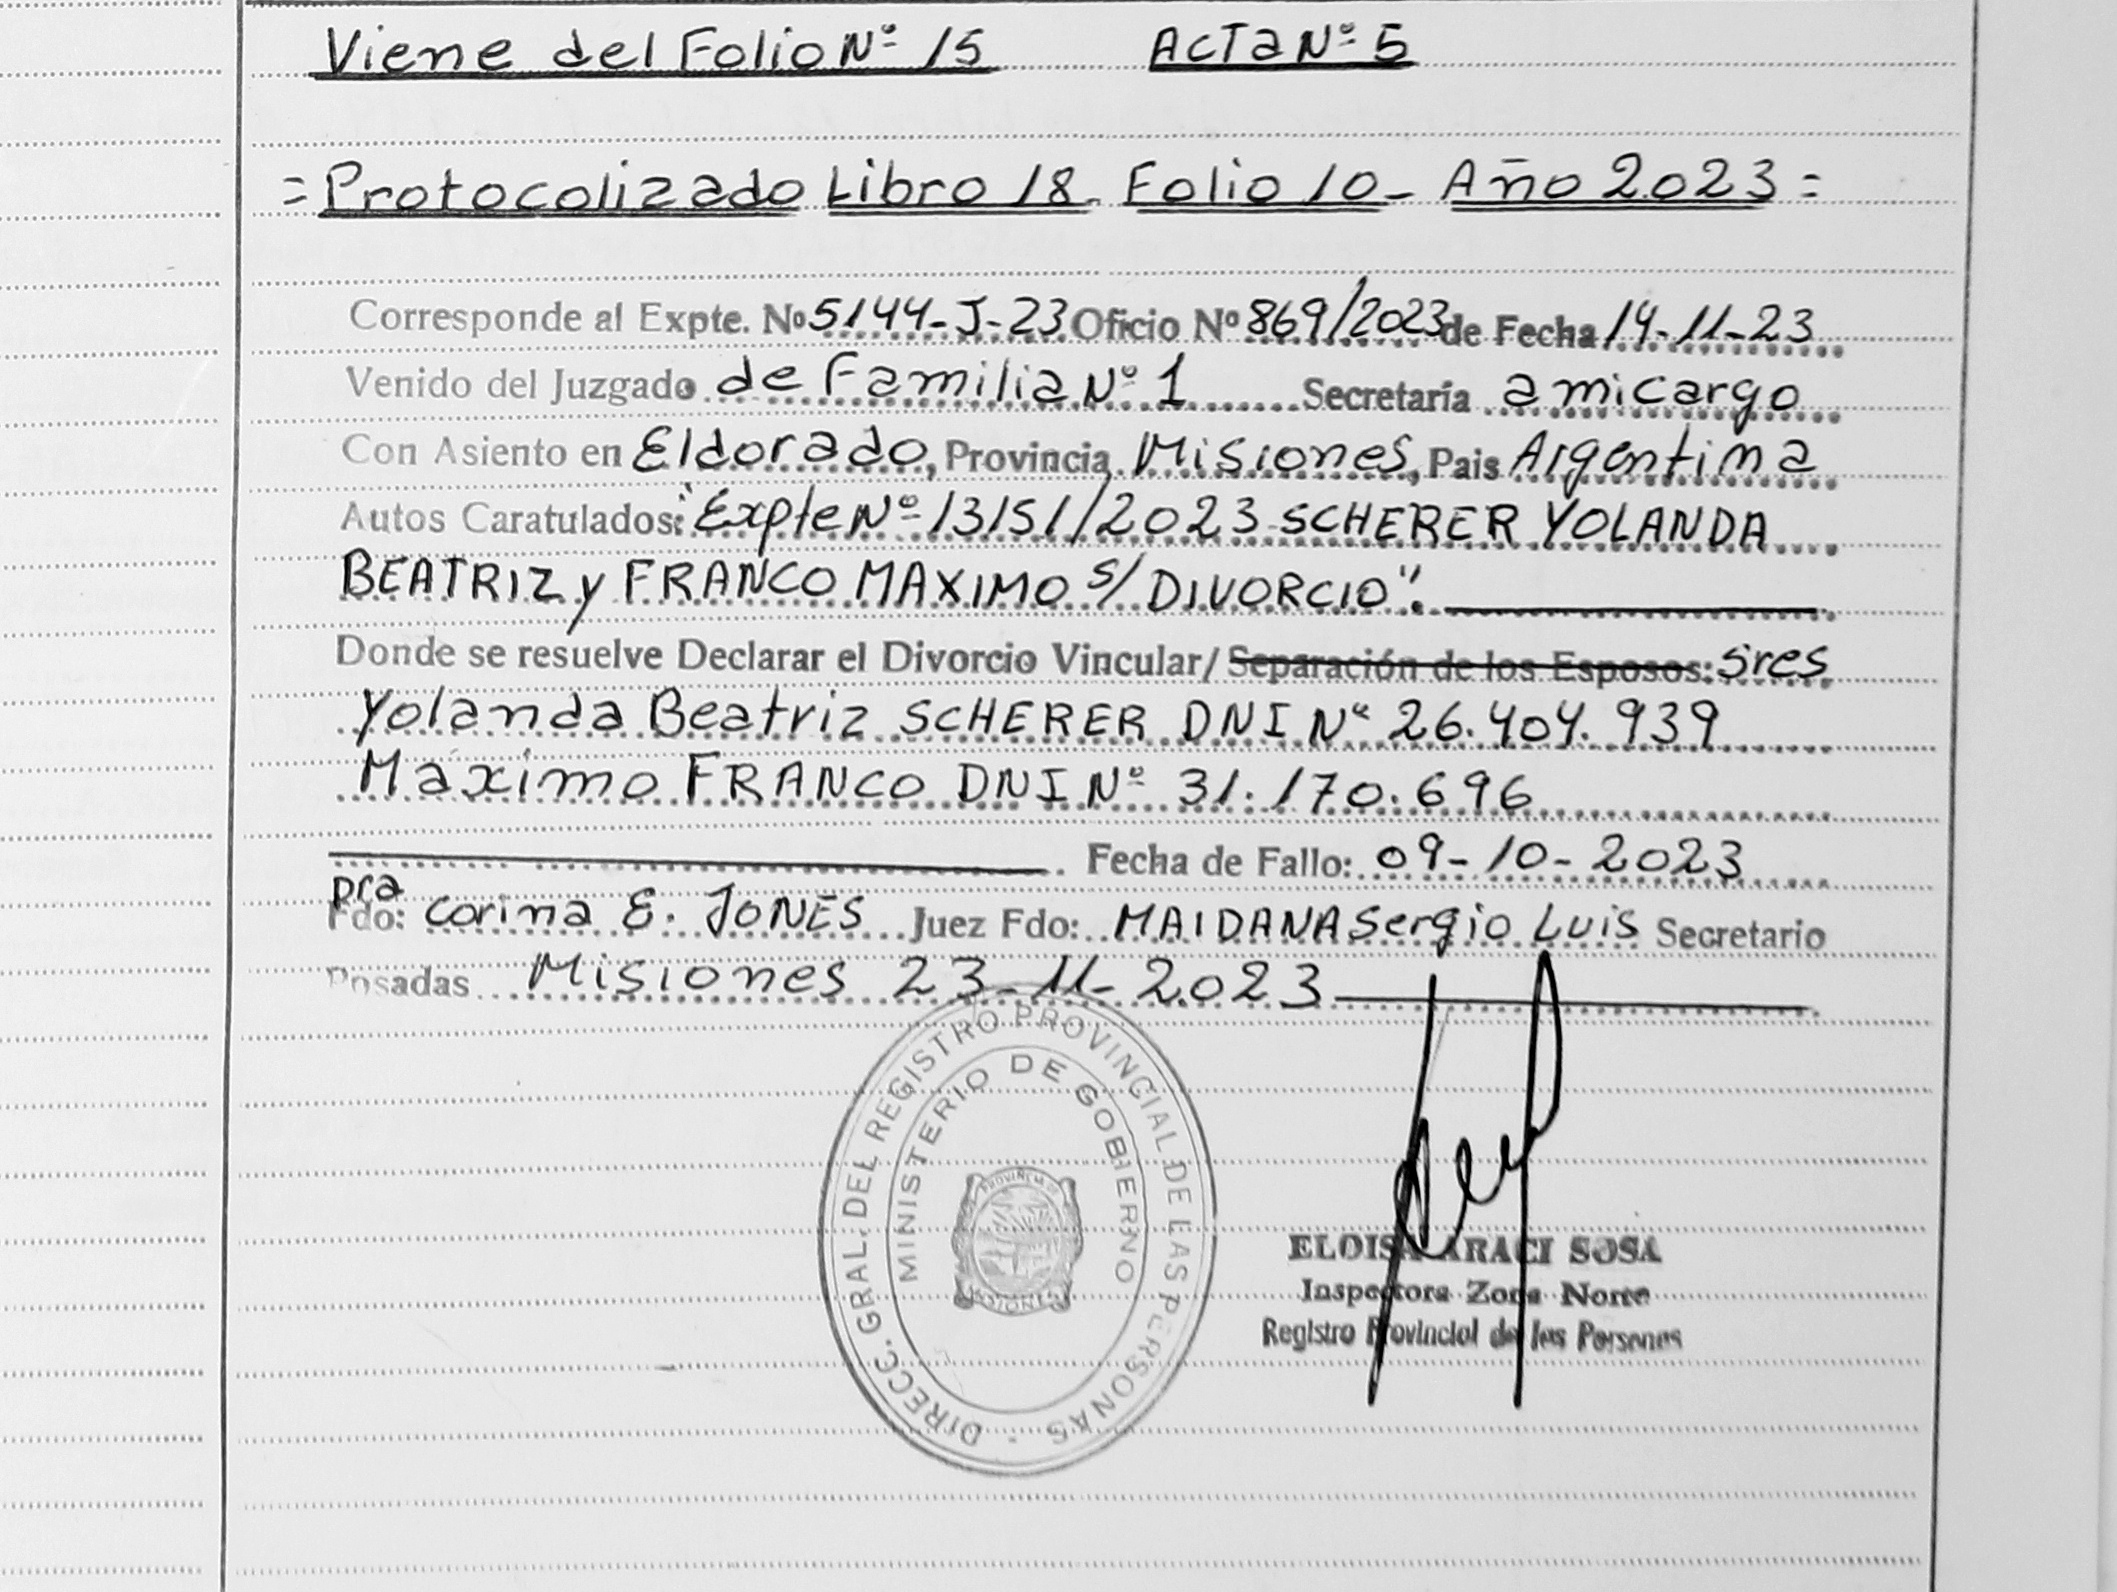 Viene del Folio Nº 15 Acta Nº 5
= Protocolizado Libro 18. Folio 10- Año 2023 =
Corresponde al Expte. Nº 5144-J-23 Oficio Nº 869/2023 de Fecha 14-11-23
Venido del Juzgado de Familia Nº 1 Secretaría a mi cargo
Con Asiento en Eldorado, Provincia Misiones, Pais Argentina
Autos Caratulados: "Expte Nº 13151/2023 SCHERER YOLANDA
BEATRIZ y FRANCO MAXIMO s/ DIVORCIO".
Donde se resuelve Declarar el Divorcio Vincular/ Separación de los Esposos: sres
Yolanda Beatriz SCHERER DNI Nº 26.404.939
Máximo FRANCO DNI Nº 31.170.696
Fecha de Fallo: 09-10-2023
Fdo: Dra Corina E. JONES Juez Fdo: MAIDANA Sergio Luis Secretario
Posadas Misiones 23-11-2023
DIRECC. GRAL. DEL REGISTRO PROVINCIAL DE LAS PERSONAS
MINISTERIO DE GOBIERNO
PROVINCIA DE
MISIONES
ELOISA ARACI SOSA
Inspectora Zona Norte
Registro Provincial de las Personas